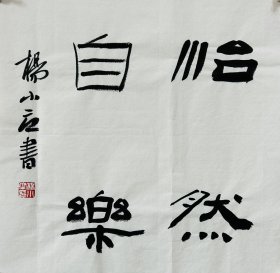 怡然
自樂
楊小應書